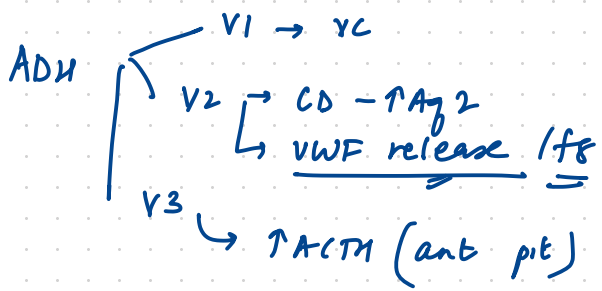 V1 → VC
ADH
V2 → CD - ↑Aq 2
↳ VWF release / f8
V3
↳ ↑ACTH (ant pit)